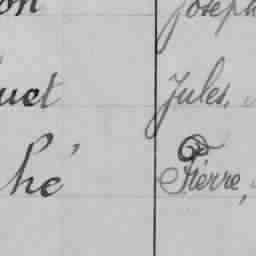 on Joseph
uet Jules,
hé Pierre,